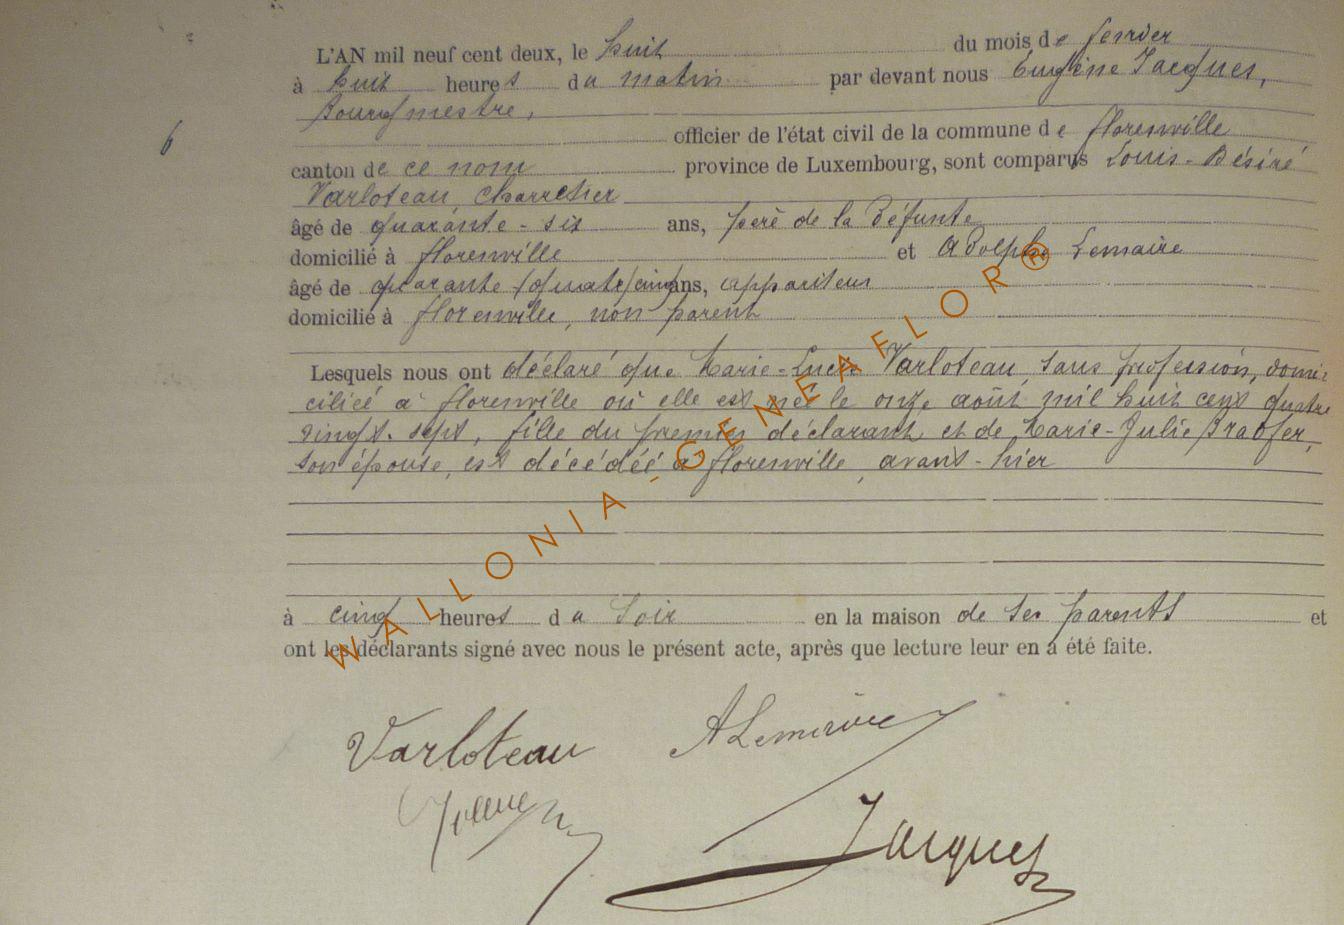 L'AN mil neuf cent deux, le huit du mois de fevrier
à huit heures du matin par devant nous Eugène Jacques,
Bourgmestre,
officier de l'état civil de la commune de florenville
6
canton de ce nom province de Luxembourg, sont comparus Louis-Désiré
Varloteau, charretier
âgé de quarante-six ans, père de la défunte
domicilié à florenville et Adolphe Lemaire
âgé de quarante (quatre) cinq ans, appariteur
domicilié à florenville, non parent
Lesquels nous ont déclaré que Marie-Lucie Varloteau, sans profession, domi-
ciliée à florenville où elle est née le onze août mil huit cent quatre
vingt-sept, fille du premier déclarant et de Marie-Julie
son épouse, est décédée à florenville, avant-hier
à cinq heures du soir en la maison de ses parents et
ont les déclarants signé avec nous le présent acte, après que lecture leur en a été faite.
Varloteau A Lemaire
Jacques
WALLONIA-GENEAFLOR®